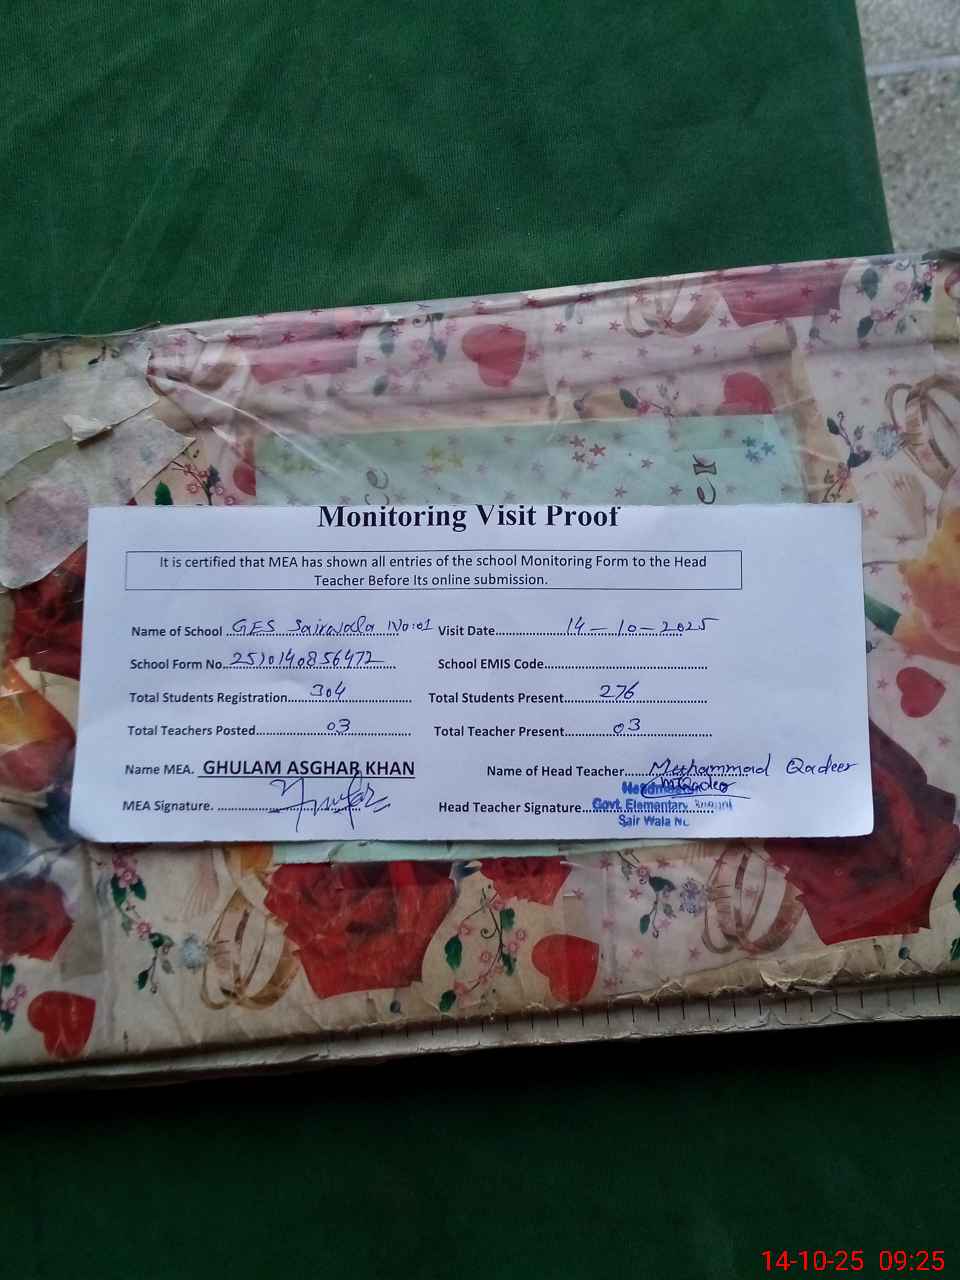 Monitoring Visit Proof
It is certified that MEA has shown all entries of the school Monitoring Form to the Head
Teacher Before Its online submission.
Name of School GES Sairwala No:01 Visit Date 14-10-2025
School Form No. 2510140856472 School EMIS Code
Total Students Registration 304 Total Students Present 276
Total Teachers Posted 03 Total Teacher Present 03
Name MEA. GHULAM ASGHAR KHAN Name of Head Teacher Muhammad Qadeer
MEA Signature. Head Teacher Signature MQadeer
Govt. Elementary
Sair Wala
er
14-10-25 09:25